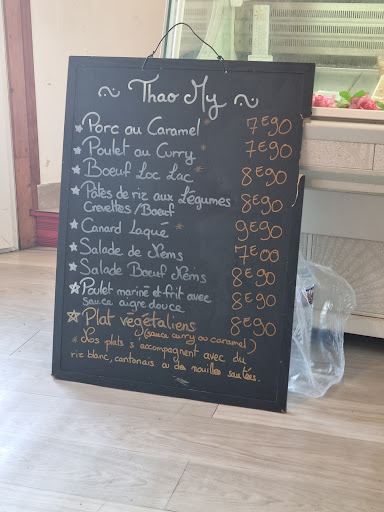 ~ Thao My ~
★ Porc au Caramel * 7€90
★ Poulet au Curry * 7€90
★ Boeuf Loc Lac * 8€90
★ Pates de riz aux Légumes
Crevettes / Boeuf 8€90
★ Canard Laqué * 9€90
★ Salade de Nems 7€00
★ Salade Boeuf Nems 8€90
★ Poulet mariné et frit avec
sauce aigre douce 8€90
★ Plat végétaliens 8€90
(sauce curry ou caramel)
* Nos plats s'accompagnent avec du
riz blanc, cantonais ou de nouilles sautées.